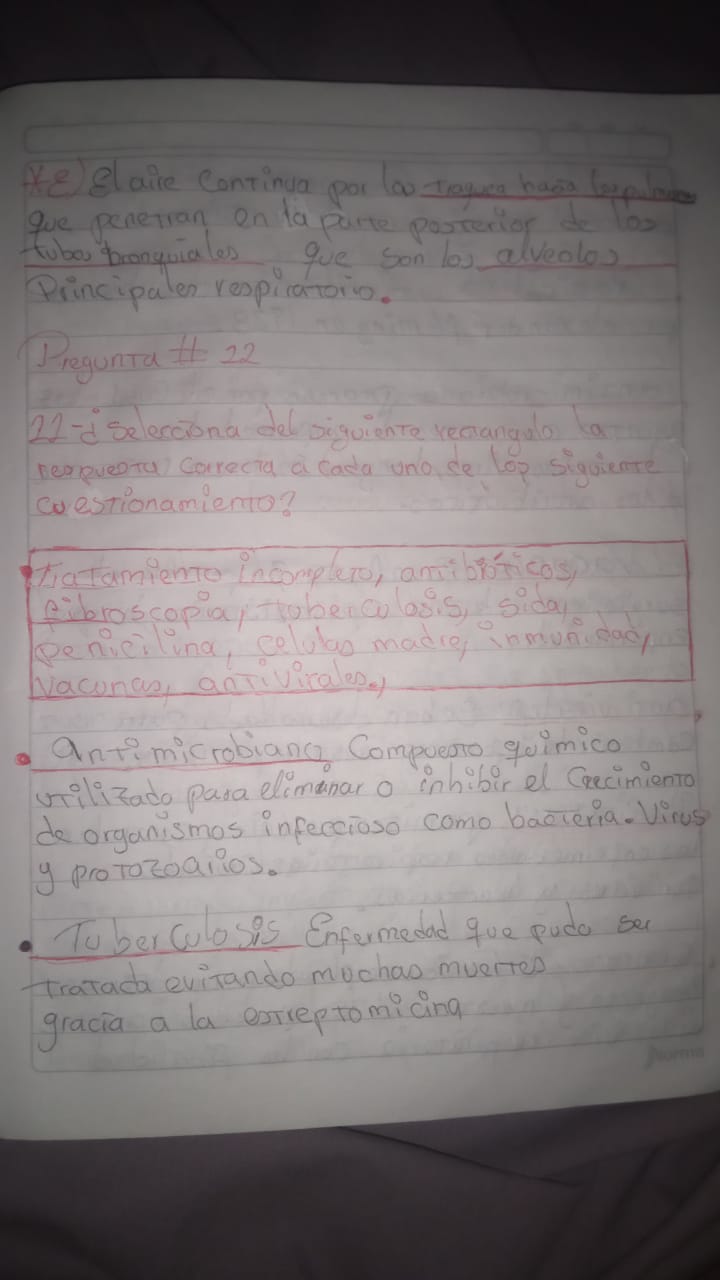 *e) El aire continua por las traquea hacia los
que penetran en la parte posterior de los
tubos bronquiales que son los alveolos
Principales respiratorio.
Pregunta # 22
22-¿Selecciona del siguiente rectangulo la
respuesta correcta a cada uno de los siguiente
cuestionamiento?
tratamiento incompleto, antibióticos,
fibroscopia, tuberculosis, sida,
penicilina, celulas madre, inmunidad,
Vacunas, antivirales.,
• Antimicrobiano Compuesto químico
utilizado para eliminar o inhibir el Crecimiento
de organismos infeccioso como bacteria. Virus
y protozoarios.
• Tuberculosis Enfermedad que pudo ser
tratada evitando muchas muertes
gracia a la estreptomicina
Norma